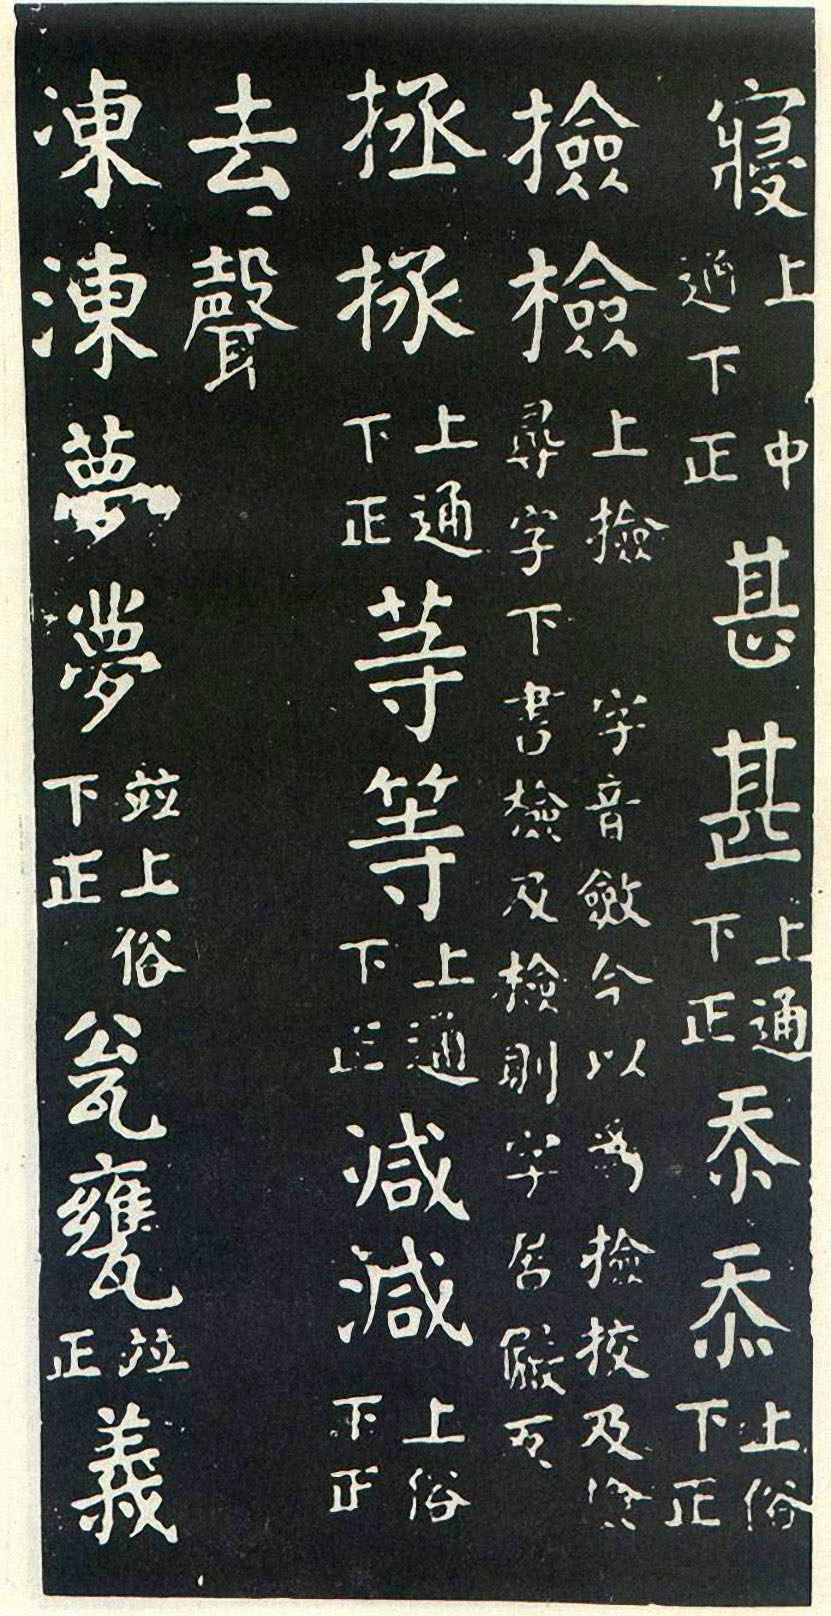 寢上中通下正甚甚上通下正忝忝上俗下正
撿檢上撿字音斂今以為撿挍及尋字下書檢及檢則字居儼反
拯拯上通下正䓁等上通下正减減上俗下正
去聲
凍涷夢夢並上俗下正瓮甕並正義